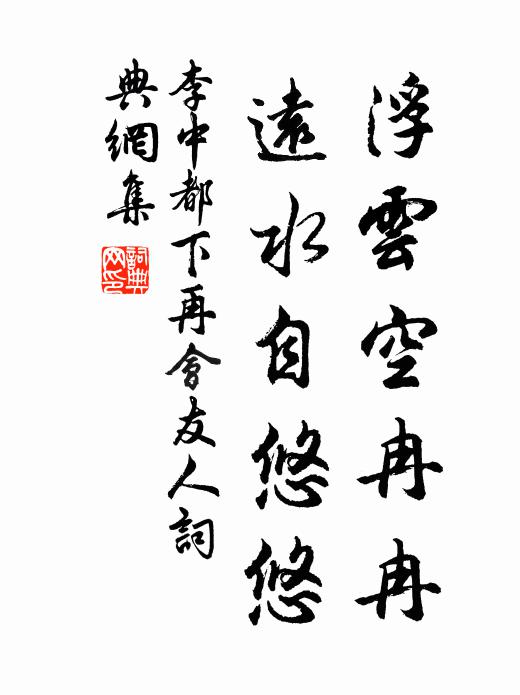 浮雲空冉冉
遠水自悠悠
李中都下再會友人詞
典網集
詞典
网印